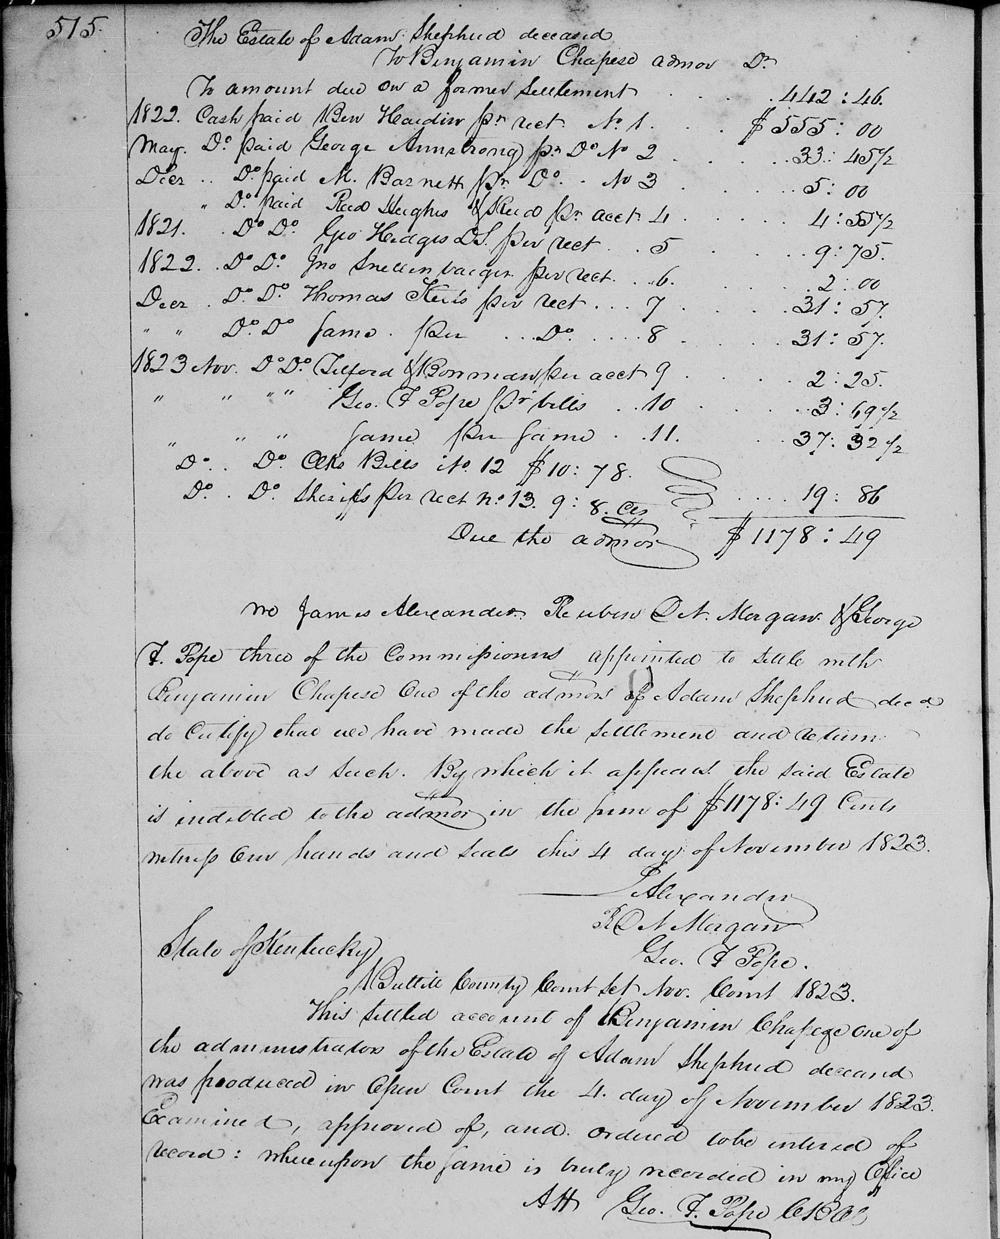 515.
The Estate of Adam Shepherd deceased
To Benjamin Chapeze admor Dr
To amount due on a former settlement . . . 442 : 46.
1822. Cash paid Ben Hardin pr rect. No 1. . . . $555 : 00
May. Do paid George Armstrong pr Do No 2 . . . . 33 : 45 1/2
Decr .. Do paid M. Barnett pr Do. . No 3 . . . . 5 : 00
" Do paid Reed Hughs & Reed pr acct 4 . . . . 4 : 55 1/2
1821. . Do Do. Geo Hedges DS. per rect . . 5 . . . . 9 : 75.
1822. . Do Do. Jno Snellenbarger per rect . . . 6. . . . . 2 : 00
Decr . Do. Do. Thomas per rect . . . 7 . . . . 31 : 57.
" " Do. Do same . per . . . Do. . . . . 8 . . . . 31 : 57.
1823 Nov. Do Do. Tilford & Bowman per acct 9 . . . . 2 : 25.
" " " " Geo. F Pope pr bills . . 10 . . . . 3 : 69 1/2
" " " same per same . . 11. . . . 37 : 32 1/2
Do. . Do. Clks Bills No 12 $10 : 78.
Do. . Do. Sheriffs per rect no. 13. 9 : 8. Cts . . . . 19 : 86
Due the admor $1178 : 49
We James Alexander Reuben D N. Morgan & George
F. Pope three of the Commissioners appointed to settle with
Benjamin Chapeze One of the admors of Adam Shepherd decd
do Certify that we have made the settlement and return
the above as such. By which it appears the said Estate
is indebted to the admor in the sum of $1178 : 49 Cents
witness Our hands and seals this 4 day of November 1823.
J Alexander
R D N Morgan
Geo. F Pope.
State of Kentucky
Bullitt County Court Sct Nov. Court 1823.
This settled account of Benjamin Chapeze one of
the administrators of the Estate of Adam Shepherd deceased
was produced in Open Court the 4. day of November 1823.
Examined, approved of, and ordered to be entered of
record : whereupon the same is truly recorded in my Office
Att Geo. F. Pope CBC